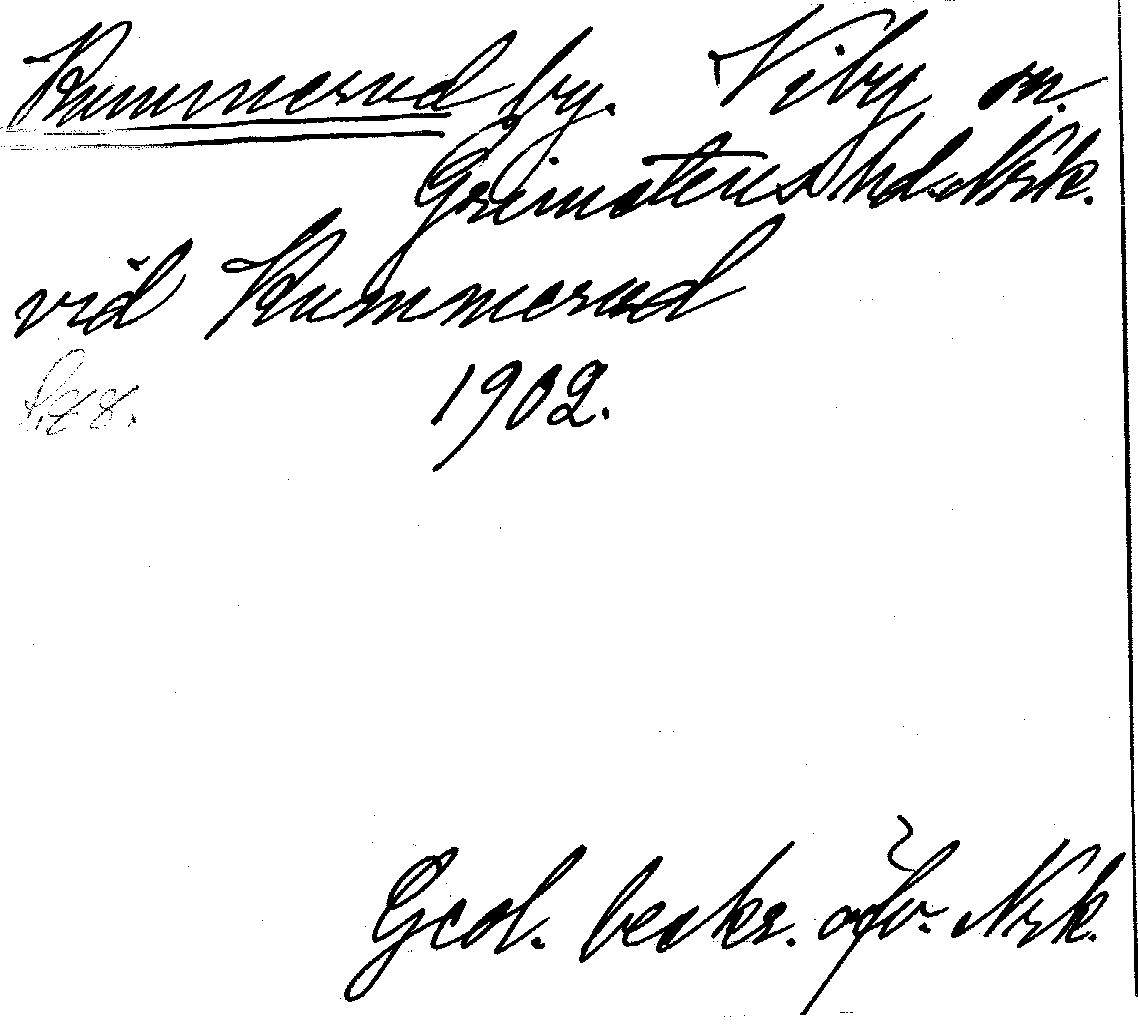 Kummerud by. Viby sn.
Grimstens hd. Nrk.
vid Kummerud
1902.
Geol. beskr. öfv. Nrk.